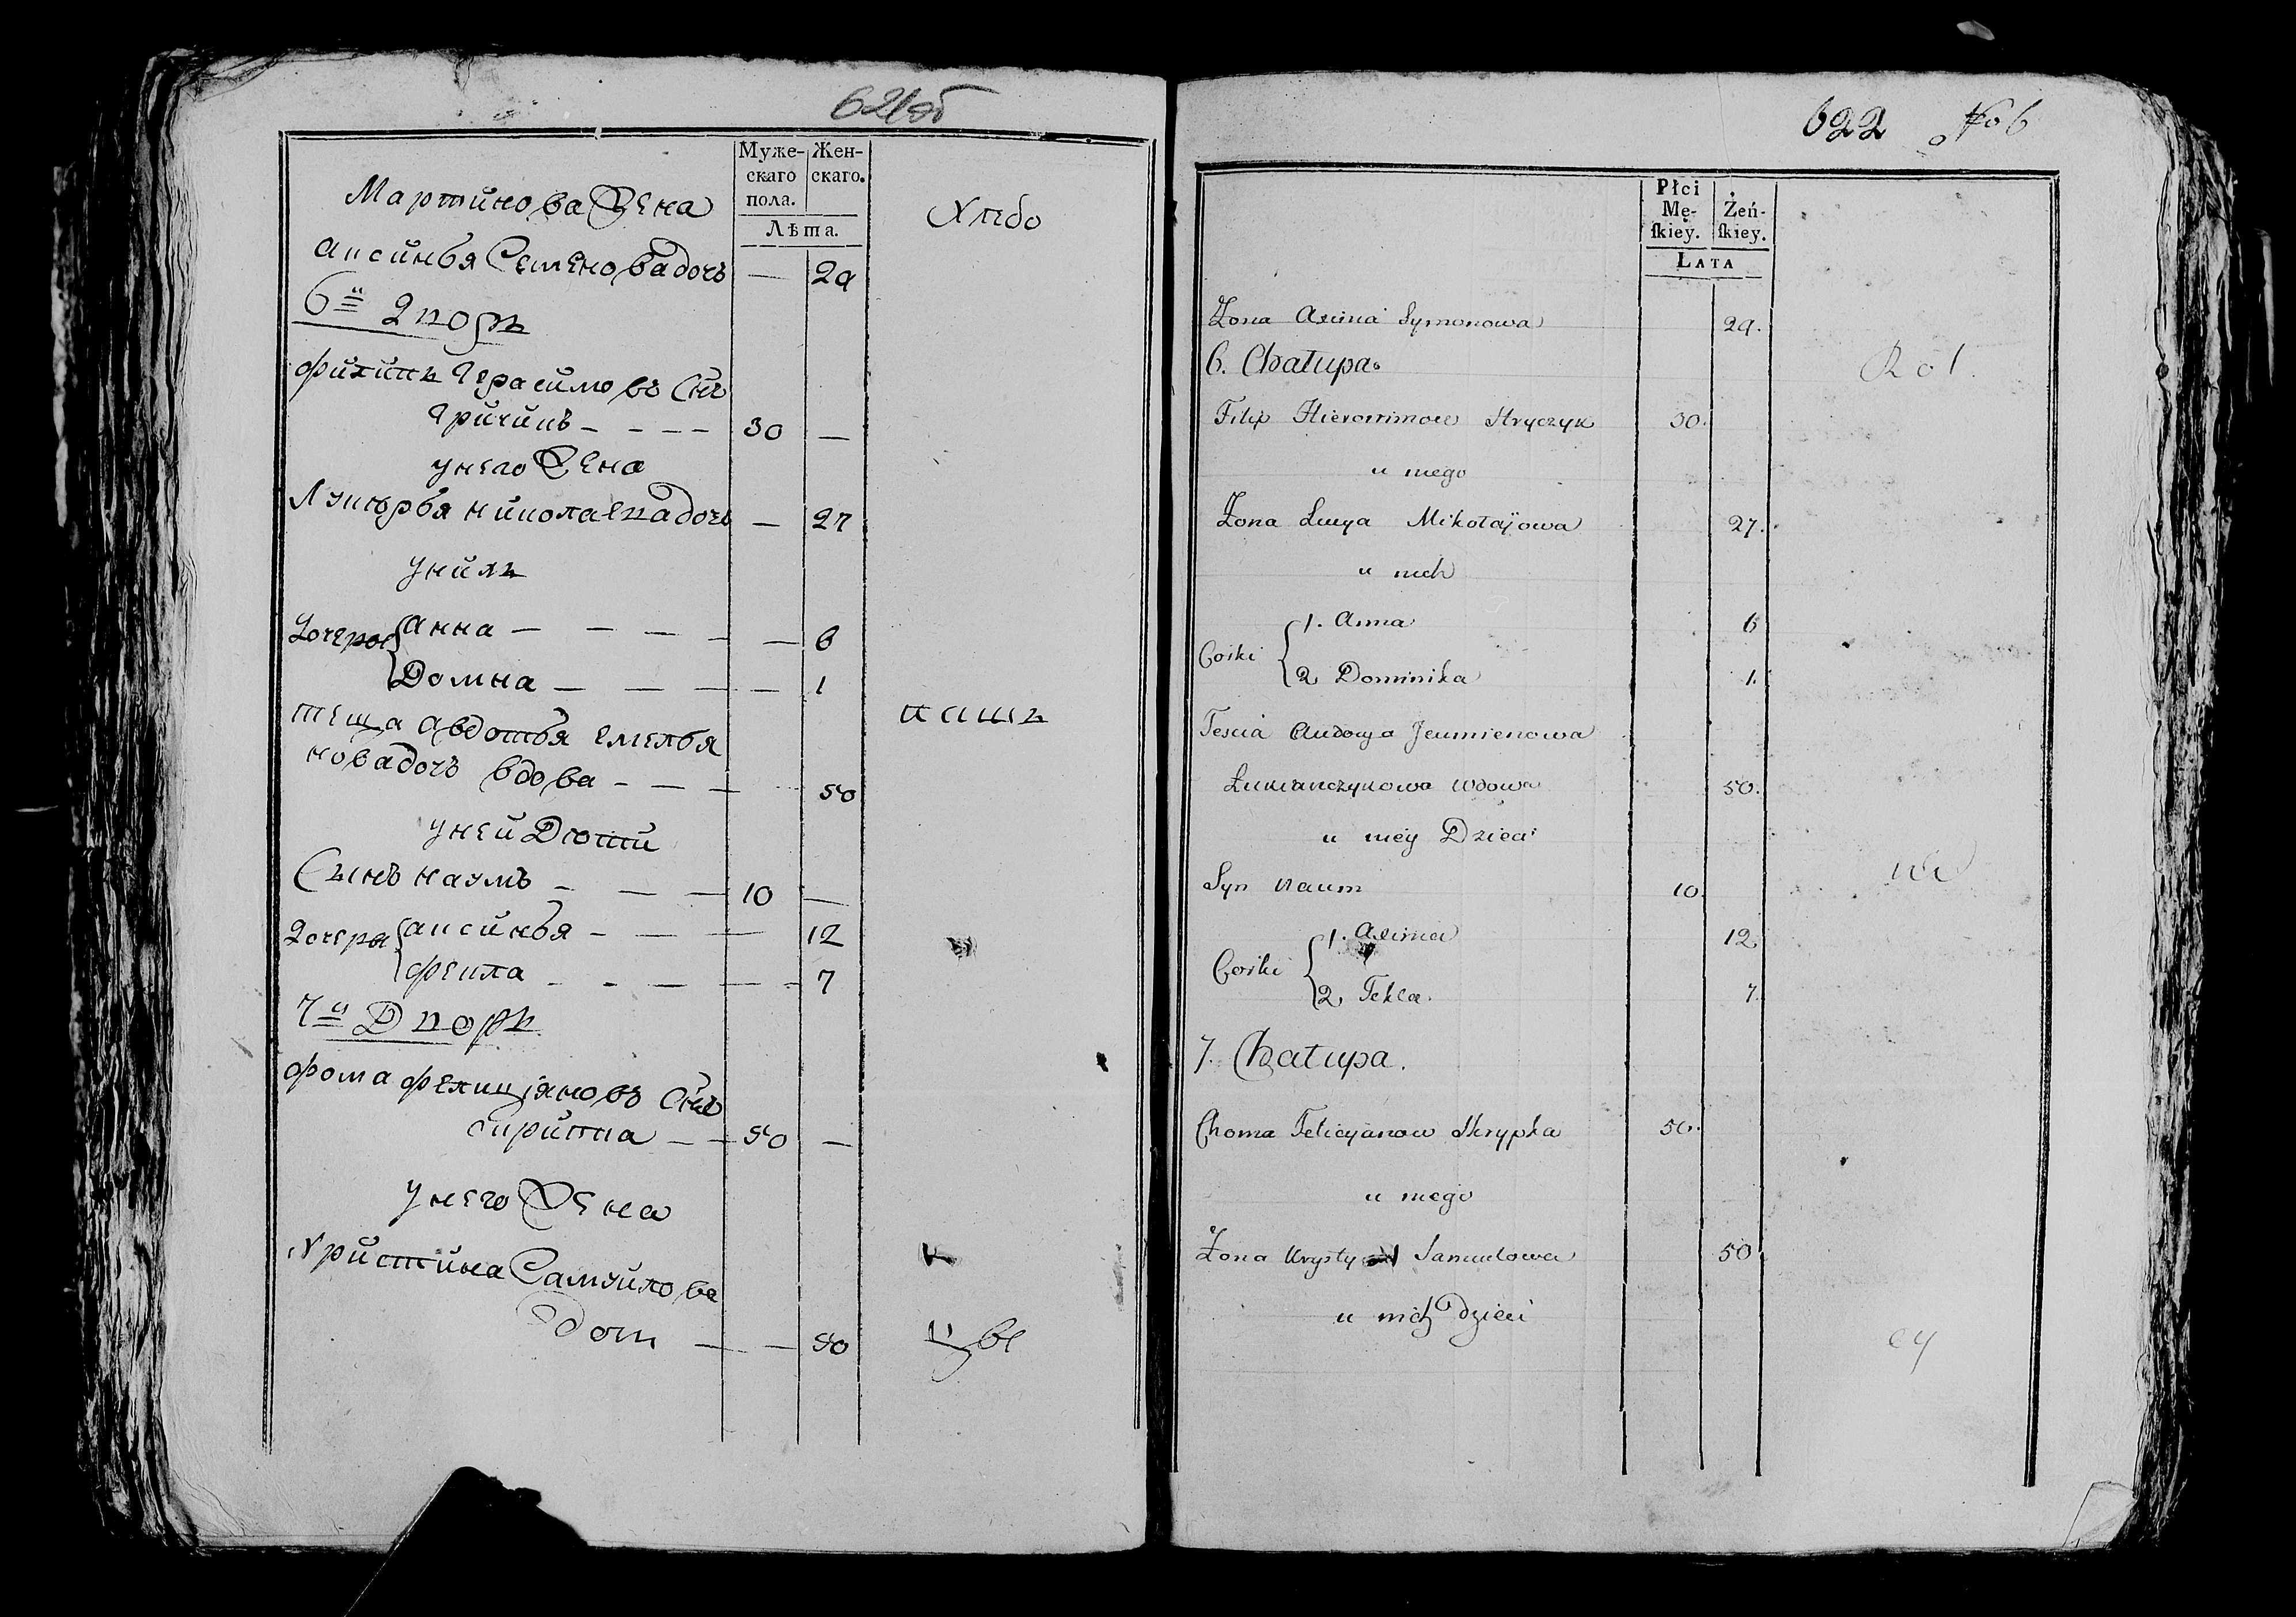 621об
Муже-
скаго
пола.
Жен-
скаго.
Лѣта.
Мартинова Жена
Аксинья Семенова дочь — 29
Хлебо
6й Дворъ
Филипъ Герасимовъ Снъ
Гричикъ — — — — 30 —
у него Жена
Лукерья Николаева дочь — 27
у нихъ
Дочери { Анна — — — — — 6
Домна — — — — — 1
теща Авдотья Емелья
нова дочь вдова — — — 50
пашъ
у ней Дѣти
Сынъ Наумъ — — — 10 —
Дочери { Аксинья — — — 12
Фекла — — — — 7
7й Дворъ
Фома Фелиціяновъ Снъ
Скрипка — — 50 —
у него Жена
Христина Самуилова
дочь — — 50
622 No 6
Płci
Mę-
ſkiey.
Żeń-
ſkiey.
LATA
Żona Axinia Symonowa 29.
6. Chałupa.
Rol
Filip Hieronimow Hryczyk 30.
u niego
Żona Łucya Mikołajowa 27.
u nich
Corki { 1. Anna 6
2 Dominika 1.
Tescia Audocya Jeumienowa
Łukianczykowa Wdowa 50.
u niey Dzieci
Syn Naum 10.
Corki { 1. Axinia 12
2. Tekla. 7.
7. Chałupa.
Choma Felicyanow Skrypka 50.
u niego
Żona Krysty Samuelowa 50.
u nich dzieci